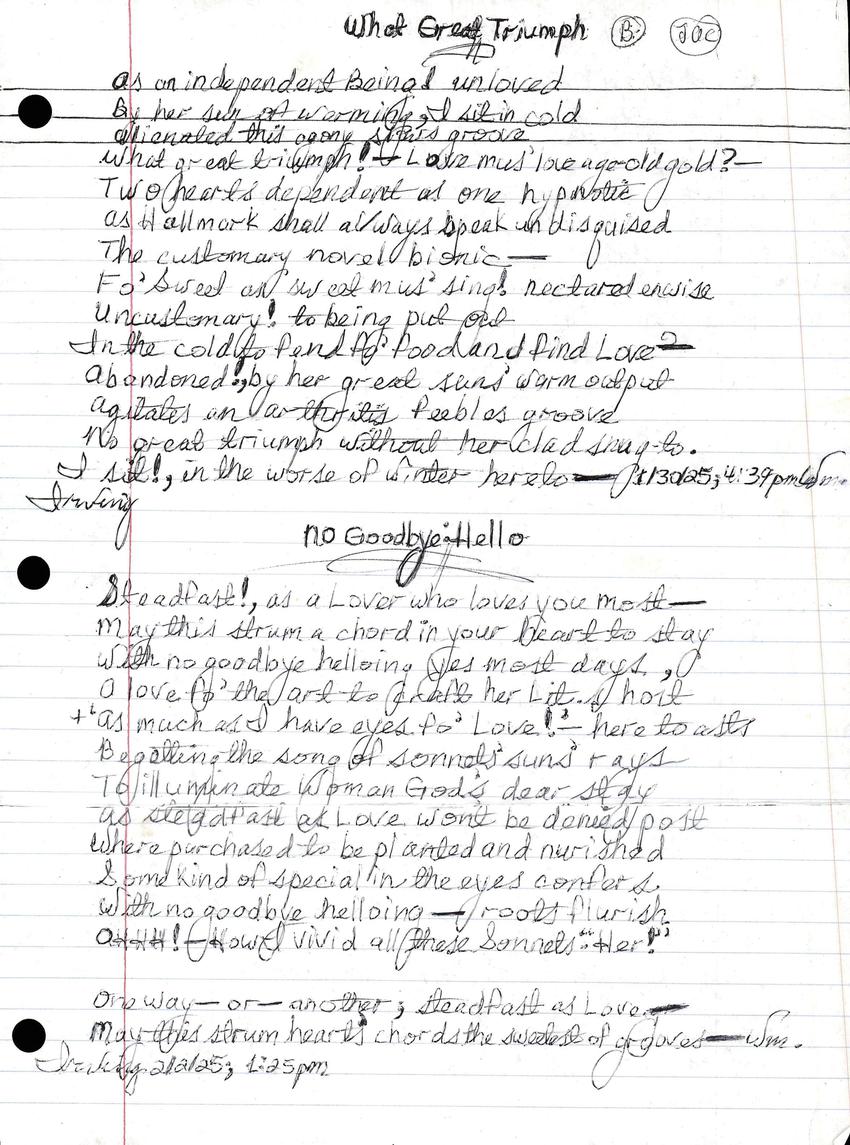 What Great Triumph B. JOC
as an independent Being! unloved
By her sun of warming, I sit in cold
alienated this agony stirs groove
What great triumph! — Love mus' love age-old gold? —
Two hearts dependent as one hypnotic
as Hallmark shall always speak undisguised
The customary novel bionic —
Fo' Sweet an' sweet mus' sing! nectared enwise
Uncustomary! to being put out
In the cold to fend fo' food and find Love —
abandoned!, by her great suns' warm output
agitates an arthritis feebles groove
No great triumph without her clad snug-to.
I sit!, in the worse of winter hereto — 1/30/25; 4:39pm Wm.
Irving
No Goodbye: Hello
Steadfast!, as a Lover who loves you most —
May this strum a chord in your heart to stay
With no goodbye helloing yes most days,
a love fo' the art to craft her Lit. host
+ as much as I have eyes fo' Love! — here to asts
Begetting the song of sonnets' suns' rays
To illuminate Woman God's dear stay
as steadfast as Love won't be denied post
Where purchased to be planted and nurished
Some kind of special in the eyes confers
With no goodbye helloing — roots flurish
aHHH! — How vivid all these Sonnets: "Her!"
One way — or — another; steadfast as Love —
May this strum heart's chords the sweetest of grooves — Wm.
Irving 2/2/25; 1:25pm